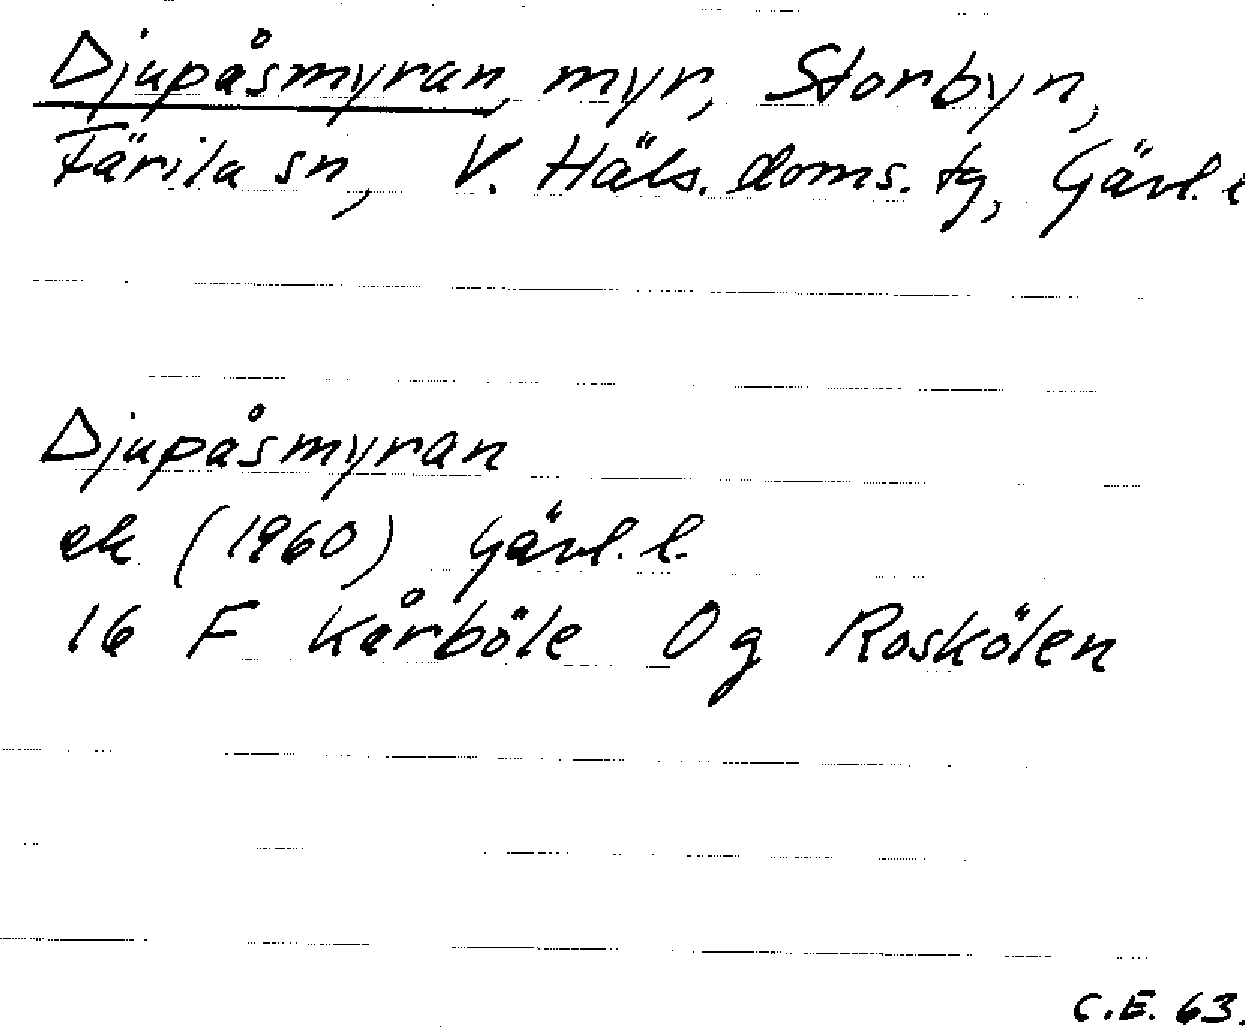 Djupåsmyran, myr, Storbyn,
Färila sn, V. Häls. doms. tg, Gävl. l
Djupåsmyran
ek (1960) Gävl. l.
16 F Kårböle 0 g Roskölen
C.E. 63.